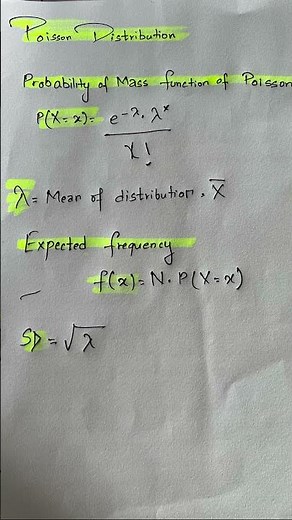 Poisson Distribution
Probability of Mass function of Poisson
P(X=x)= e^-λ . λ^x
x!
λ = Mean of distribution, X̅
Expected frequency
f(x)= N. P(X=x)
SD = √λ